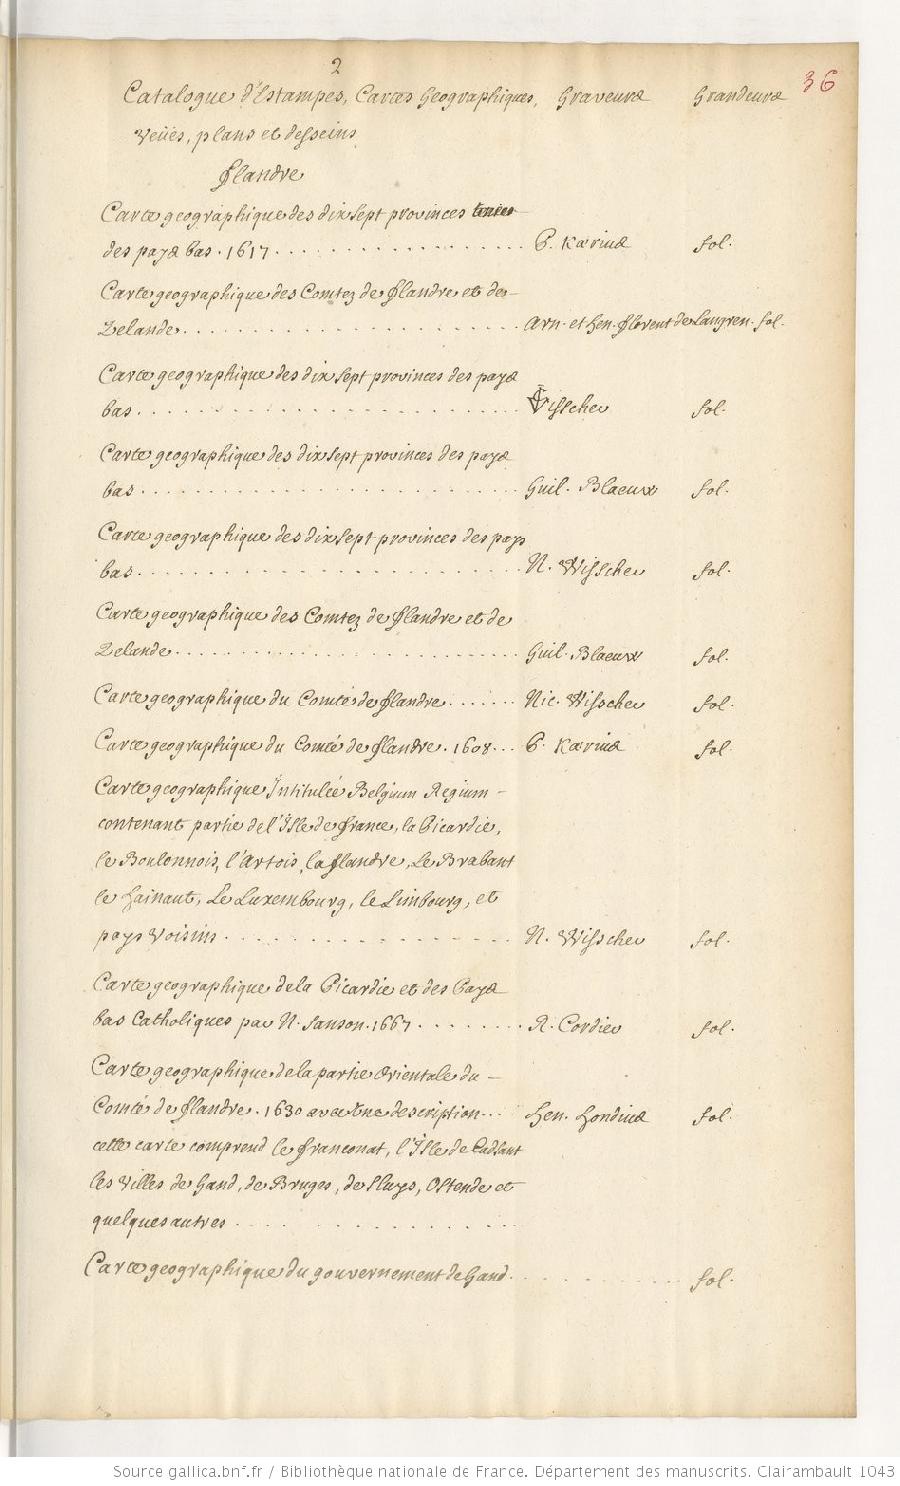 2
36
Catalogue d'Estampes, Cartes Geographiques, Graveurs Grandeurs
Veües, plans et desseins
Flandre
Carte geographique des dix sept provinces
des pays bas. 1617 P. Kærius fol.
Carte geographique des Comtez de Flandre et de
Zelande Arn. et Hen. Florent de Langren. fol.
Carte geographique des dix sept provinces des pays
bas Visscher fol.
Carte geographique des dix sept provinces des pays
bas Guil. Blaeux fol.
Carte geographique des dix sept provinces des pays
bas N. Wisscher fol.
Carte geographique des Comtez de Flandre et de
Zelande Guil. Blaeux fol.
Carte geographique du Comté de Flandre Nic. Wisscher fol.
Carte geographique du Comté de Flandre. 1608 P. Kærius fol.
Carte geographique Intitulée Belgium Regium
contenant partie de l'Isle de France, la Picardie,
le Boulonnois, l'Artois, la Flandre, Le Brabant
le Hainaut, Le Luxembourg, le Limbourg, et
pays Voisins N. Wisscher fol.
Carte geographique de la Picardie et des Pays
bas Catholiques par N. Sanson. 1667 R. Cordier fol.
Carte geographique de la partie Orientale du
Comté de Flandre. 1630 avec une description Hen. Hondius fol.
cette carte comprend le Franconat, l'Isle de Cadsant
les Villes de Gand, de Bruges, de Sluys, Ostende et
quelques autres
Carte geographique du gouvernement de Gand fol.
Source gallica.bnf.fr / Bibliothèque nationale de France. Département des manuscrits. Clairambault 1043